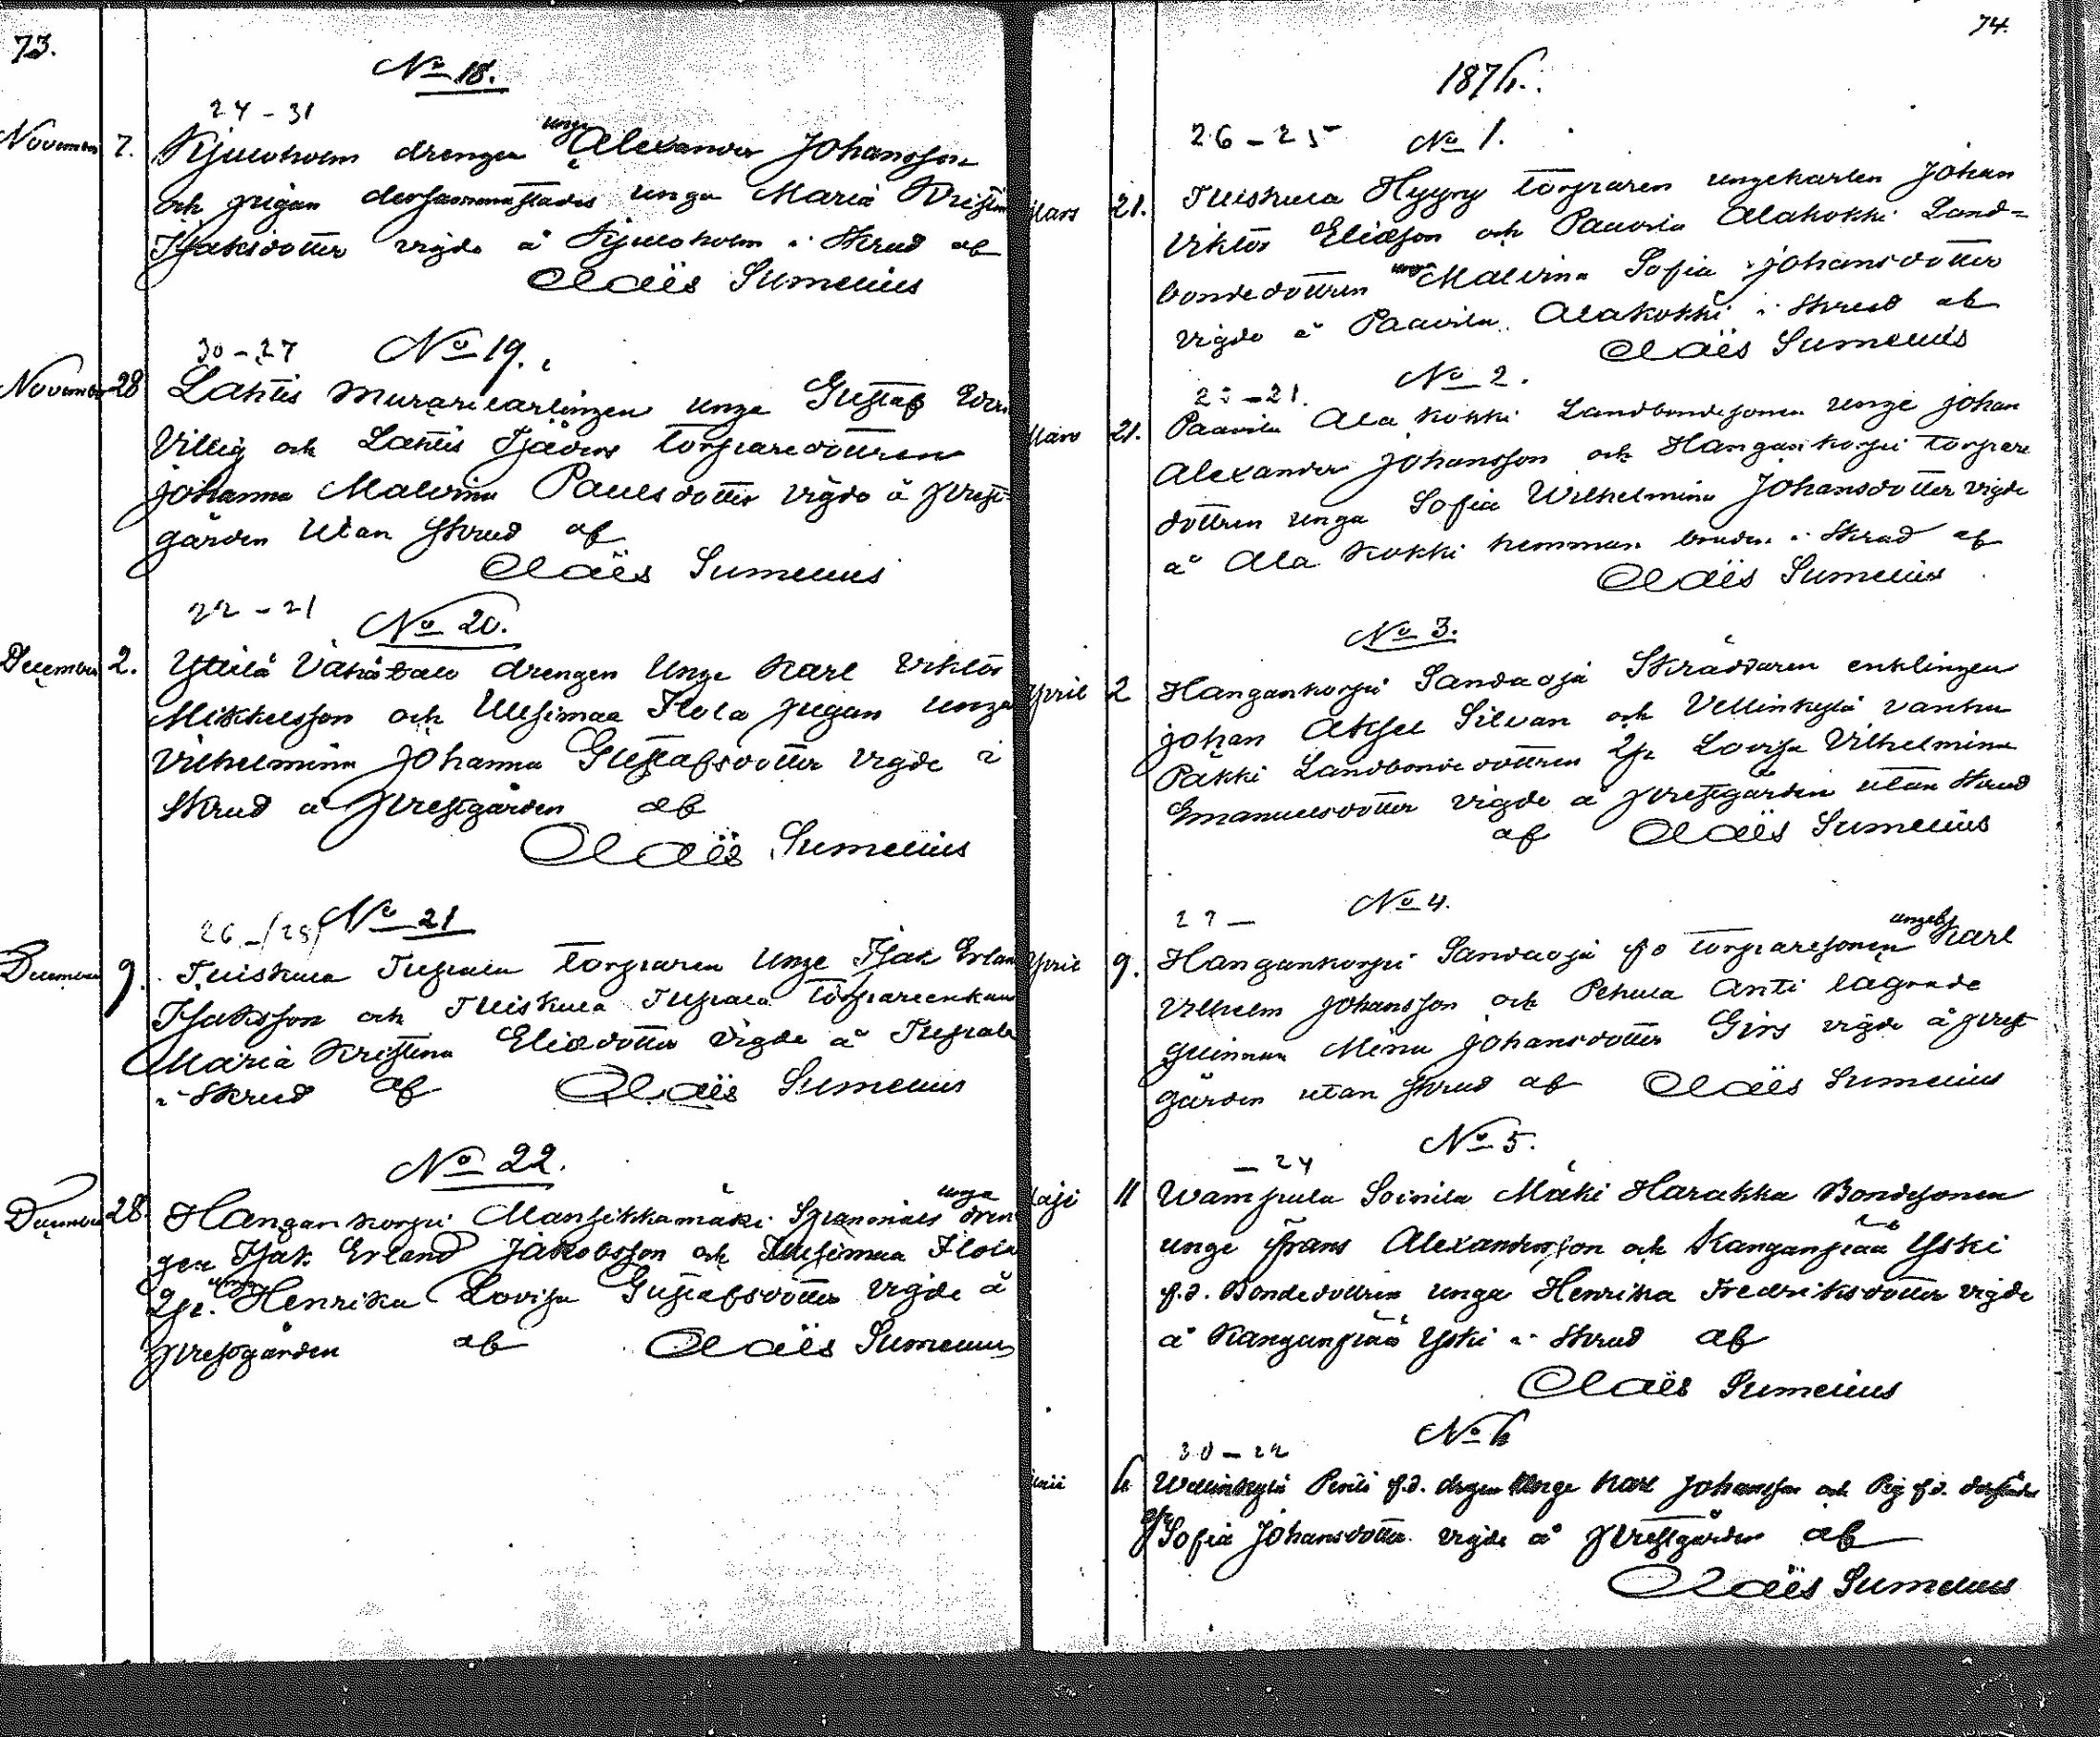 73.
No 18.
24 - 31
November 7. Kjuloholm drengen unge Alexander Johansson
och pigan dersammastädes unga Maria Kristin
Isaksdotter vigde å Kjuloholm i Skrud af
Claës Sumelius
30 - 27 No 19.
November 28 Lahtis murarelärlingen unge Gustaf
Villig och Lahtis Tjäders torparedottren
Johanna Malvina Paulsdotter vigde å prest-
gården utan skrud af
Claës Sumelius
22 - 21
No 20.
December 2. Yttilä Vähätalo drengen Unge Karl Viktor
Mikkelsson och Uusimaa Ilola pigan unga
Vilhelmina Johanna Gustafsdotter vigde i
Skrud å prestgården af
Claës Sumelius
26 - (28) No 21
December 9. Tuiskula Tupala torparen Unge Isak Erlan
Isaksson och Tuiskula Tupala torpareenkan
Maria Kristina Eliædotter vigde å Tupala
i Skrud af Claës Sumelius
No 22.
December 28 Hangankorpi Mansikkamäki Spanmåls unge dren
gen Isak Erland Jakobsson och Uusimaa Ilola
Pig. unga Henrika Lovisa Gustafsdotter vigde å
prestgården af Claës Sumelius
74.
1876.
26 - 25 No 1.
Mars 21. Tuiskula Hyyry torparen ungekarlen Johan
Viktor Eliæson och Paavila Alakokki Land-
bondedottren unga Malvina Sofia Johansdotter
vigde å Paavila Alakokki i Skrud af
Claës Sumelius
No 2.
- 21.
Mars 21. Paavila Ala kokki Landbondesonen unge Johan
Alexander Johansson och Hangankorpi torpare
dottren unga Sofia Wilhelmina Johansdotter vigde
å Ala Kokki hemman i Skrud af
Claës Sumelius
No 3.
April 2 Hangankorpi Sandaoja Skräddaren enklingen
Johan Aksel Silvan och Vellinkylä vanha
Päkki Landbondedottren Lovisa Vilhelmina
Emanuelsdotter vigde å prestgården utan Skrud
af Claës Sumelius
27 - No 4.
April 9. Hangankorpi Sandaoja fd torparesonen Karl
Vilhelm Johansson och Pehula Anti lägrade
quinnan Mina Johansdotter Girs vigde å prest
gården utan skrud af Claës Sumelius
No 5.
- 24
Maji 11 Wampula Soinila Mäki Harakka Bondesonen
unge Frans Alexandersson och Kanganpää Yski
f.d. Bondedottren unga Henrika Fredriksdotter vigde
å Kanganpää Yski i Skrud af
Claës Sumelius
No 6
30 - 22
Junii 6 Wellinkylä Perili f.d. drgen Unge Karl Johansson och Pig f.d.
Sofia Johansdotter vigde å prestgården af
Claës Sumelius